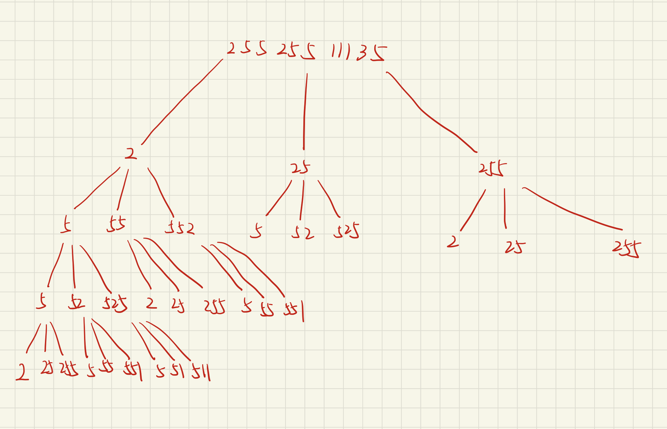 255 255 11135
2 25 255
5 55 552 5 52 525 2 25 255
5 52 525 2 25 255 5 55 551
2 25 255 5 55 551 5 51 511